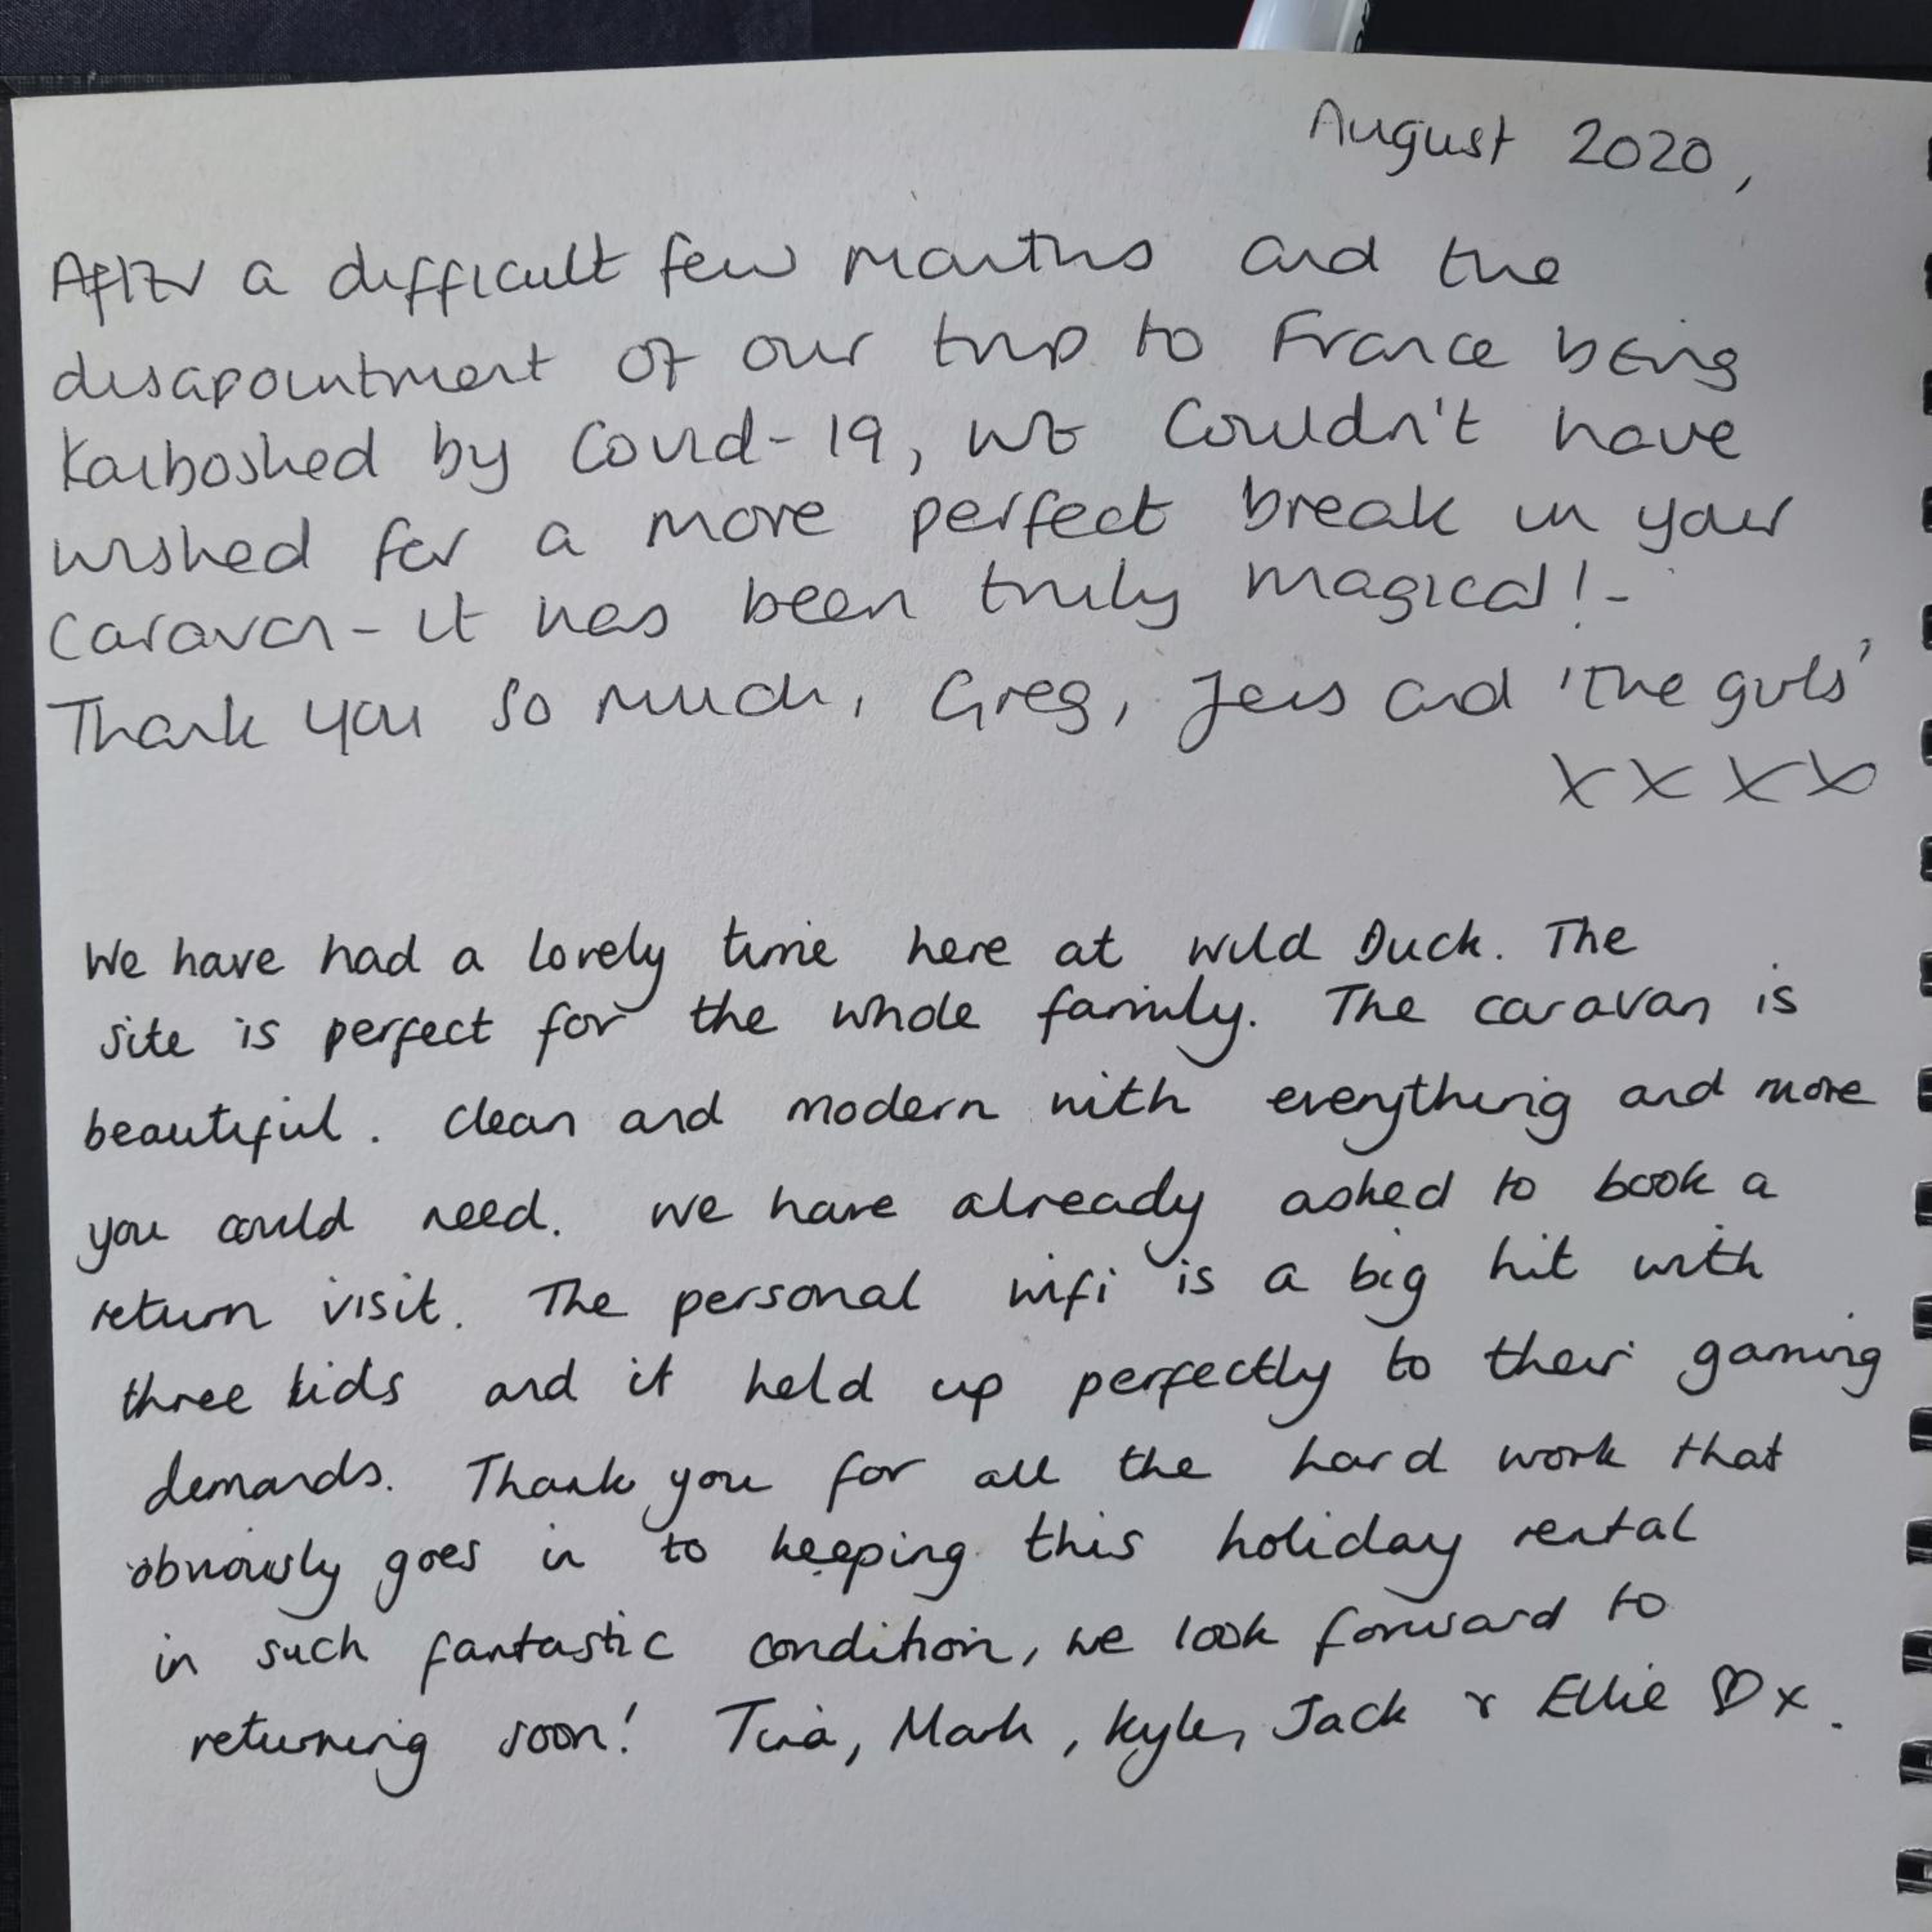 August 2020,
After a difficult few months and the
disapointment of our trip to France being
Kaiboshed by Covid-19, we couldn't have
wished for a more perfect break in your
caravan - it has been truly magical! -
Thank you so much, Greg, Jess and 'the girls'
x x x x
We have had a lovely time here at Wild Duck. The
site is perfect for the whole family. The caravan is
beautiful. Clean and modern with everything and more
you could need. We have already asked to book a
return visit. The personal wifi is a big hit with
three kids and it held up perfectly to their gaming
demands. Thank you for all the hard work that
obviously goes in to keeping this holiday rental
in such fantastic condition, we look forward to
returning soon! Tina, Mark, Kyle, Jack & Ellie ♡x.